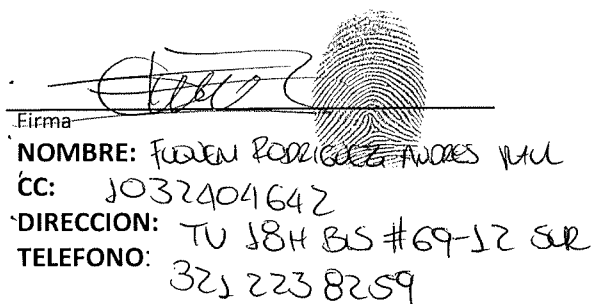 Firma
NOMBRE: FUQUEN RODRIGUEZ ANDRES
CC: 1032404642
DIRECCION: TV 18H BIS #69-12 SUR
TELEFONO: 321 2238259